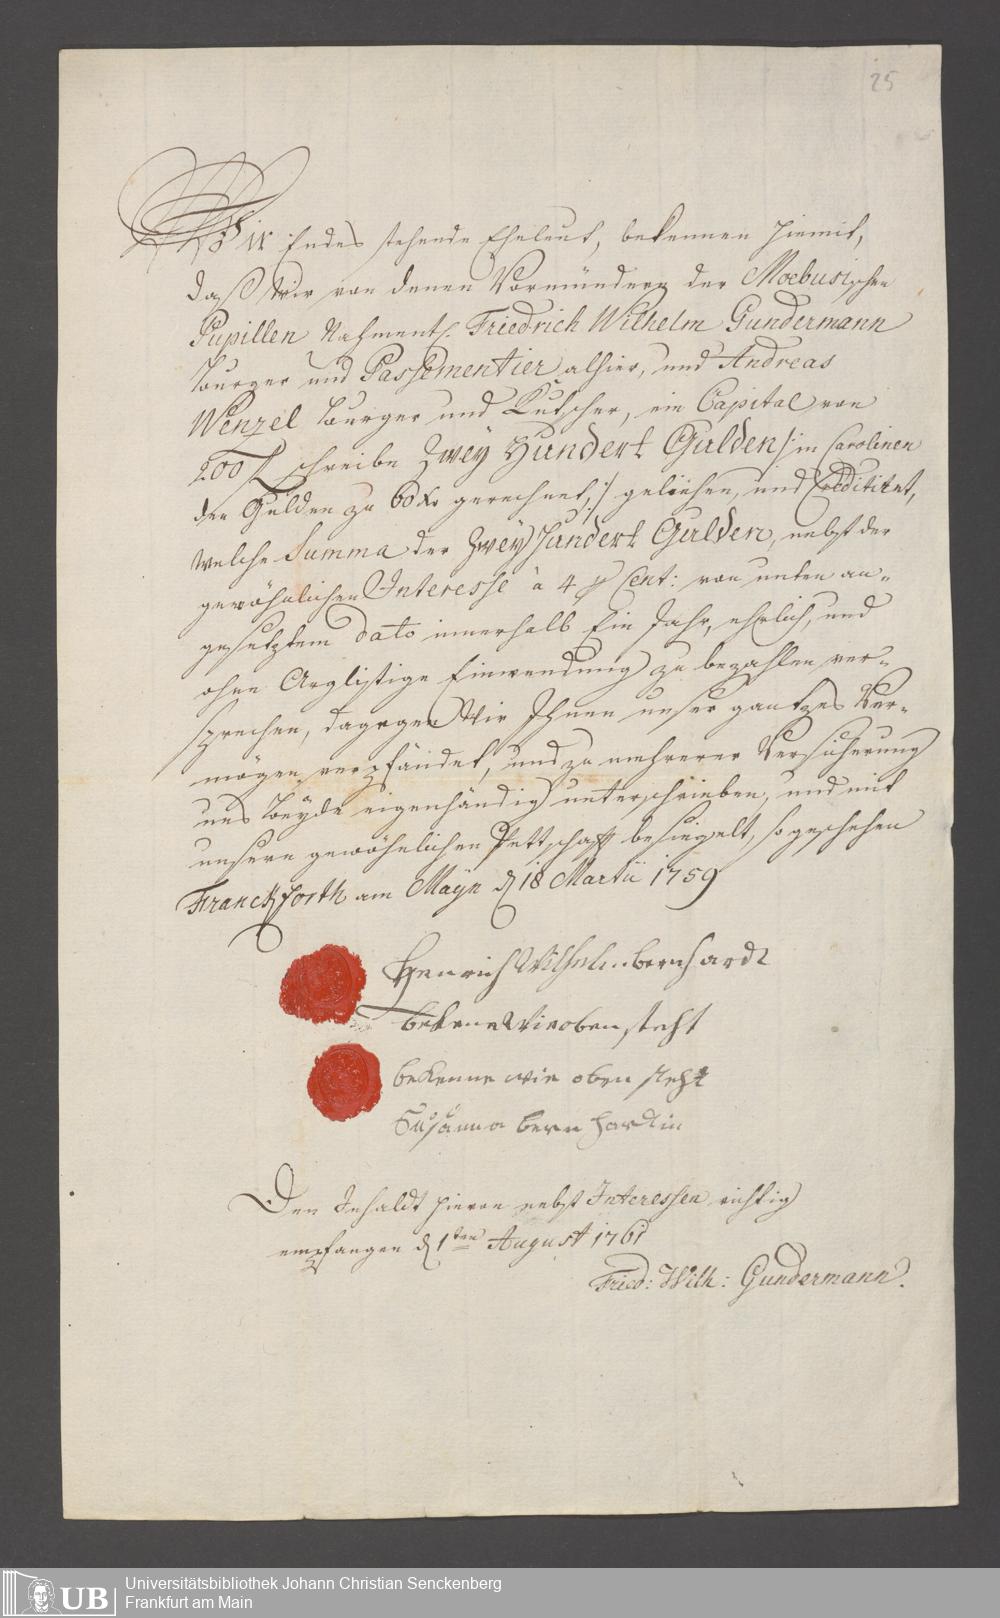 25
Wir Endes stehende Eheleut, bekennen hiemit,
daß Wir von denen Vormündern der Moebusischen
Pupillen Nahmentl. Friedrich Wilhelm Gundermann
burger und Passementier alhier, und Andreas
Wenzel burger und Kutscher, ein Capital von
200 f schreibe Zwey Hundert Gulden /: in Carolinen
den Gulden zu 60 Xr gerechnet, :/ geliehen, und Creditiret,
welche Summa der Zwey Hundert Gulden, nebst der
gewöhnlichen Interesse à 4 p Cent: von unten an-
gesetztem dato innerhalb Ein Jahr, ehrlich, und
ohne Arglistige Einwendung zu bezahlen ver-
sprechen, dagegen Wir Ihnen unser gantzes Ver-
mögen verpfändet, und zu mehrerer Versicherung
uns beyde eigenhändig unterschrieben, und mit
unsern gewöhnlichen Pettschafft besiegelt, so geschehen
Franckforth am Mayn d 18 Martii 1759
Henrich Wilhelm bernhardt
bekene Wie oben steht
bekenne wie oben steht
Susanna bernhardtin
Den Inhaldt hievon nebst Interessen richtig
empfangen d 1ten August 1761
Fried: Wilh: Gundermann.
UB
Universitätsbibliothek Johann Christian Senckenberg
Frankfurt am Main